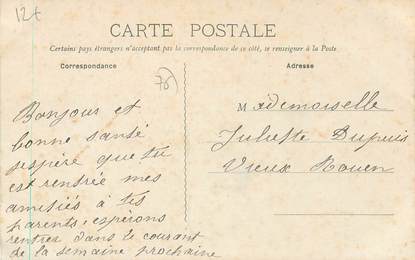 12t
CARTE POSTALE
Certains pays étrangers n'acceptant pas la correspondance de ce côté, se renseigner à la Poste
Correspondance
Adresse
78
Bonjour et
bonne santé
j'espère que tu
est rentrée mes
amitiés à tes
parents, espérons
rentrer dans le courant
de la semaine prochaine
Mademoiselle
Juliette Dupuis
Vieux Rouen